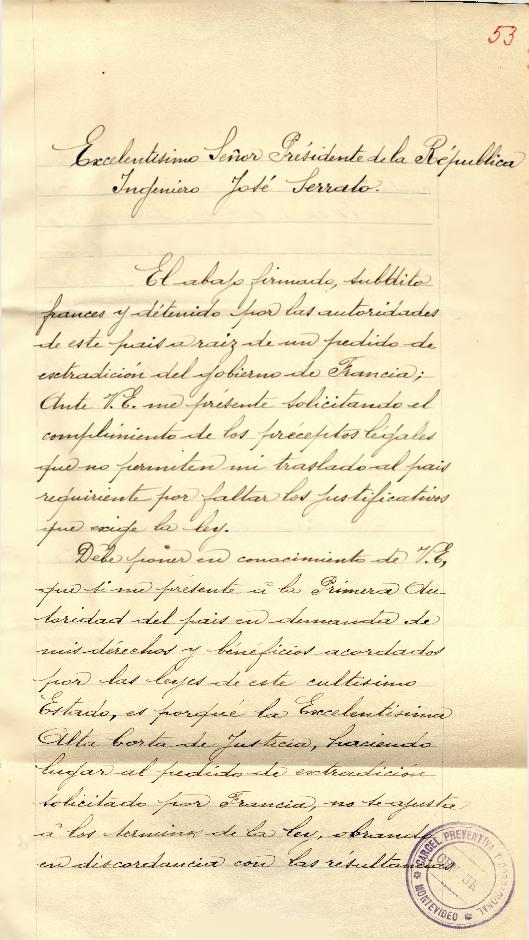 53
Excelentisimo Señor Présidente de la Républica
Ingeniero José Serrato.
El abajo firmado, subdito
frances y détenido por las autoridades
de este pais a raiz de un pedido de
exctradición del gobierno de Francia;
Ante V.E. me présente solicitando el
complimiento de los précéptos légales
que no permiten mi traslado al pais
requiriente por faltar los justificativos
que exige la ley.
Débe poner en conocimiento de V.E,
que si me présente à la Primera Au-
toridad del pais en demanda de
mis dérechos y bénéficios acordados
por las leyes de este cultisimo
Estado, es porqué la Excelentisima
Alta Corta de Justicia, haciendo
lugar al pedido de exctradición
solicitado por Francia, no se ajusta
à los terminos de la ley, obrando
en discordancia con las résultancias
CARCEL PREVENTIVA Y CORRECCIONAL
MONTEVIDEO